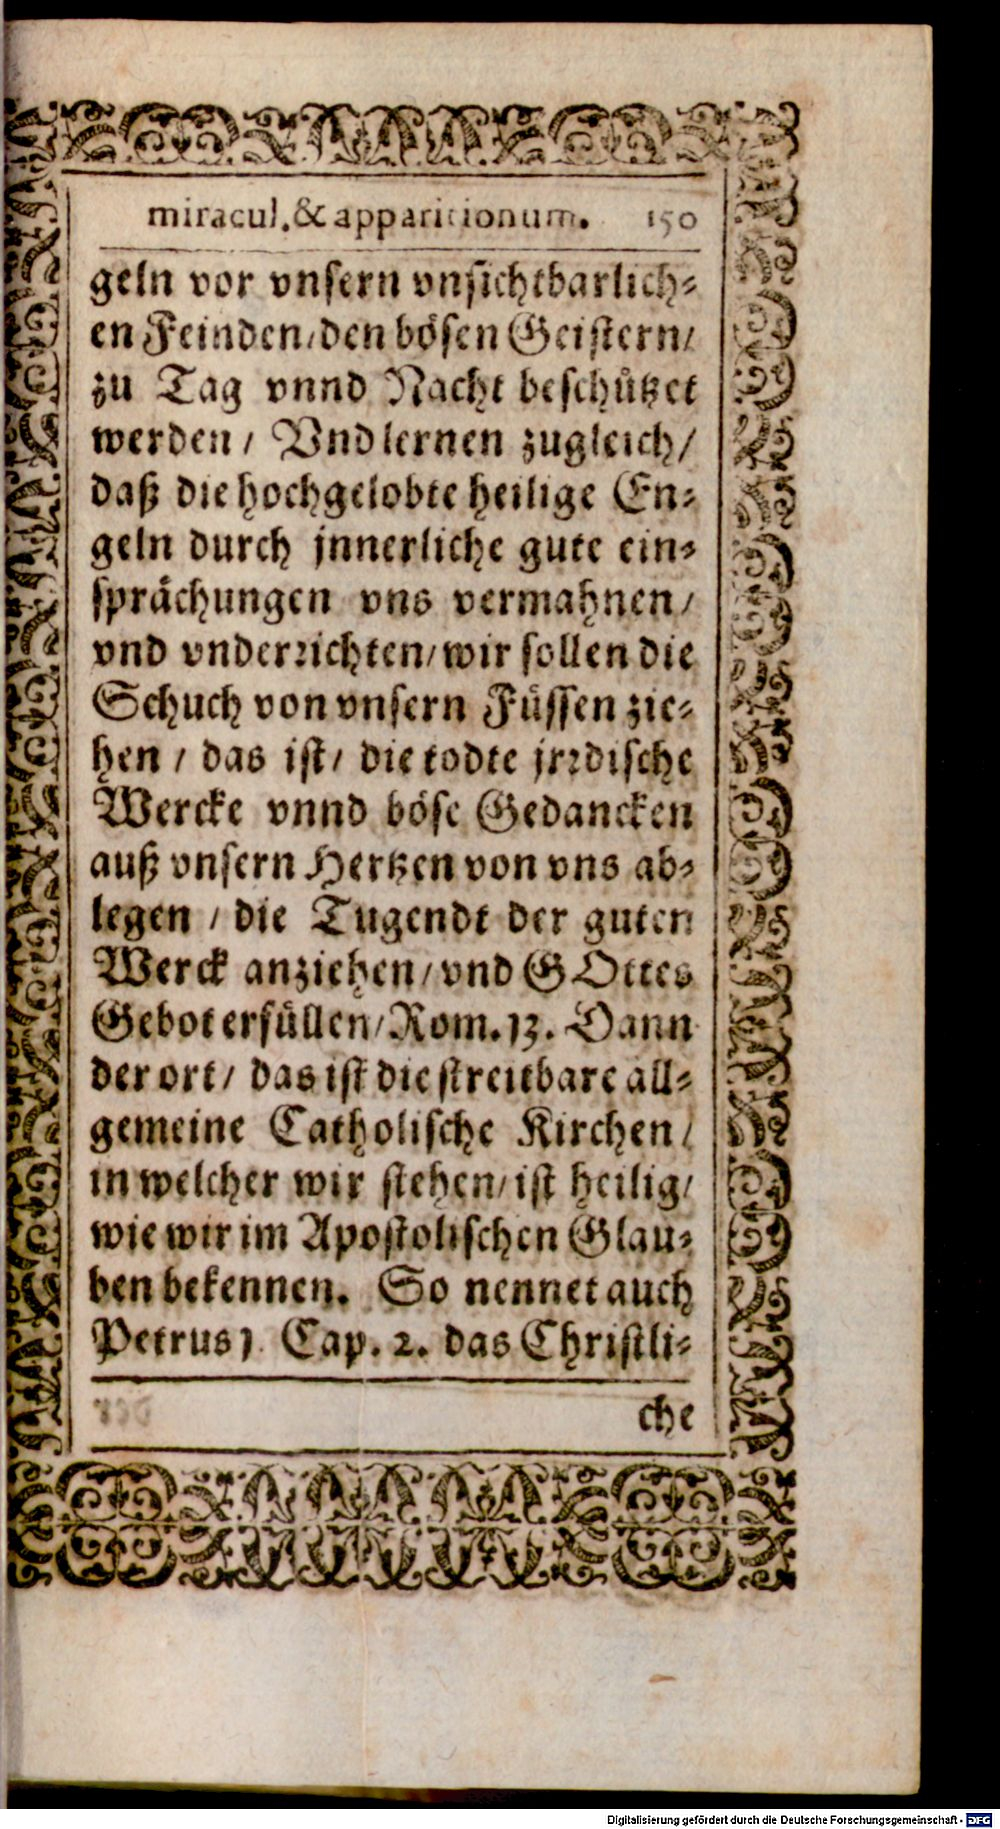 miracul. & apparitionum. 150
geln vor vnsern vnsichtbarlich-
en Feinden/ den bösen Geistern/
zu Tag vnnd Nacht beschützet
werden / Vnd lernen zugleich/
daß die hochgelobte heilige En-
geln durch jnnerliche gute ein-
sprächungen vns vermahnen/
vnd vnderrichten/ wir sollen die
Schuch von vnsern Füssen zie-
hen / das ist/ die todte jrrdische
Wercke vnnd böse Gedancken
auß vnsern Hertzen von vns ab-
legen / die Tugendt der guten
Werck anziehen/ vnd GOttes
Gebot erfüllen/ Rom. 13. Dann
der ort/ das ist die streitbare all-
gemeine Catholische Kirchen/
in welcher wir stehen/ ist heilig/
wie wir im Apostolischen Glau-
ben bekennen. So nennet auch
Petrus 1. Cap. 2. das Christli-
che
Digitalisierung gefördert durch die Deutsche Forschungsgemeinschaft - DFG